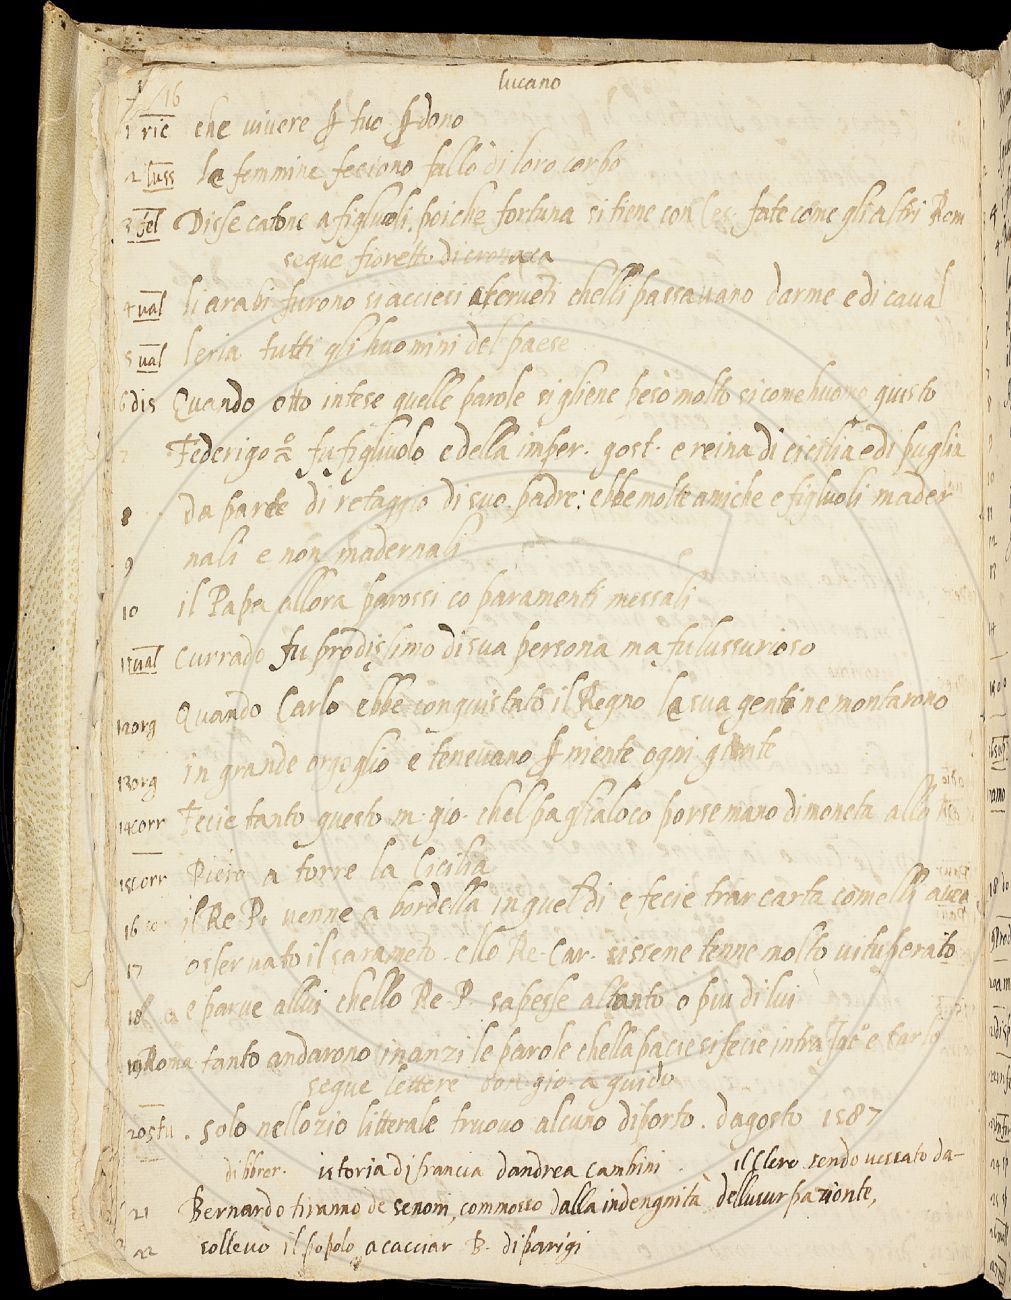 lucano
16
1 ric che vivere ꝑ tuo ꝑdono
2 luss le femmine feciono fallo di loro corpo
3 fel Disse catone a figluoli, poiche fortuna si tiene con Ces. fate come gli altri Rom
segue fioretto di cronaca
4 val li arabi furono si acciesi chelli passavano darme e di caval
5 val leria tutti gli huomini del paese
6 dis Quando otto intese quelle parole si gliene pesò molto sicome huomo giusto
7 Federigo 2° fu figluolo e della imper. gost. e reina di cicilia e di puglia
8 da parte di retaggio di suo padre: ebbe molte amiche e figluoli mader
9 nali e non madernali
10 il Papa allora parossi co paramenti messali
11 val currado fu prodissimo di sua persona ma fu lussurioso
12 org Quando Carlo ebbe conquistato il Regno la sua gente ne montarono
13 org in grande orgoglio e tenevano ꝑ niente ogni gente
14 corr Fecie tanto questo m. gio. chel paglialoco porse mano di moneta allo Re
15 corr Piero a torre la Cicilia
16 co il Re P. venne a bordella in quel di e fecie trar carta comelli avea
17 osservato il sarameto. ello Re Car. sissene tenne molto vituperato
18 e parve allui chello Re P. sapesse altanto o piu di lui
19 Roma tanto andarono inanzi le parole chella pacie si fecie intra Iac° e Carlo
segue lettere don gio. a guido
20 stu. solo nellozio litterale truovo alcuno diporto. dagosto 1587
di bbrer. istoria di francia dandrea cambini. il Clero sendo vessato da-
21 Bernardo tiranno de senoni, commosso dalla indengnità dellusurpazionte,
22 sollevò il popolo a cacciar B. di parigi